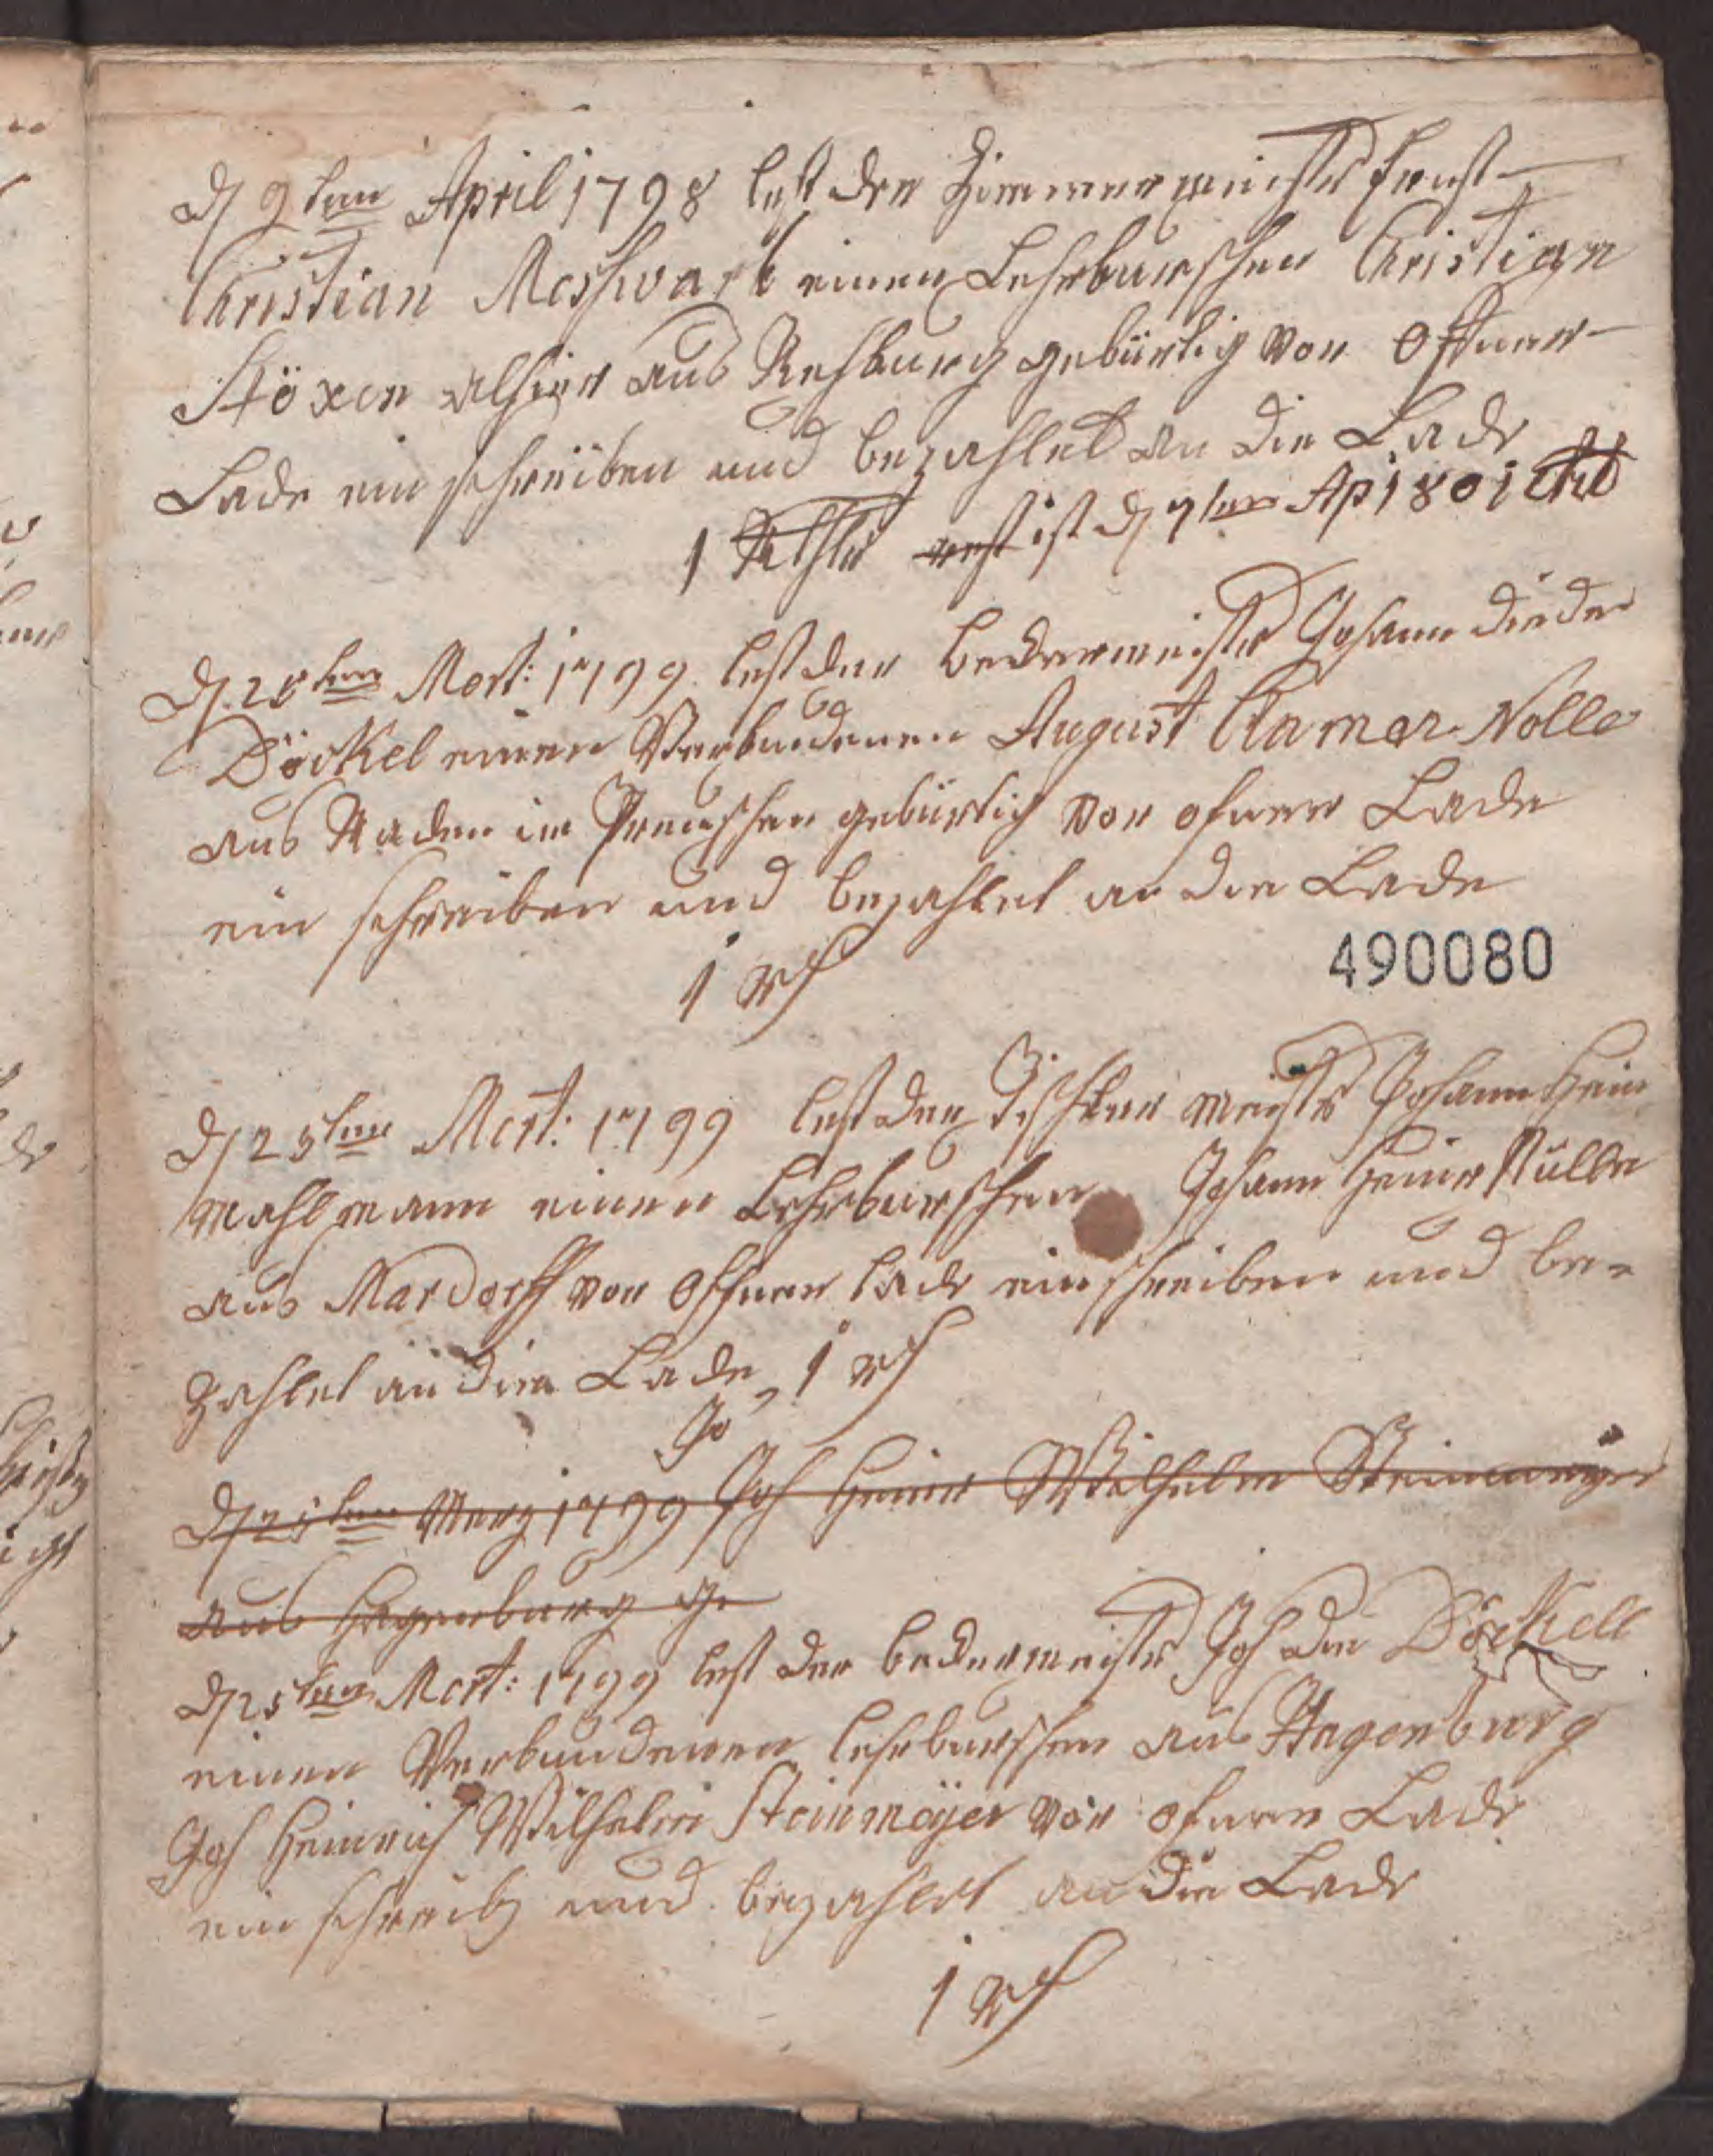 D 9ten April 1798 lest der Zimmermeister Ernst
Christian Meshwark einen Lehrburschen Christian
Stöxen alhier aus Rehburg gebürtig vor offener
Lade ein schreiben und bezahlet an die Lade
1 Rthlr rest ist d 7ten Ap 1801
D. 25ten Mert: 1799 lest der beckermeister Johann Dieder
Döckel einen Verbundenen August Clamor Nolle
aus Raden im Preuschen gebürtig vor ofner Lade
ein schreiben und bezahlet an die Lade
1 rh
490080
D 25ten Mert: 1799 lest der Tischler meister Johann Hein
Mahlmann einen Lehrburschen Johann Heinr Nülle
aus Mardorff vor offner lade ein schreiben und be-
zahlet an die Lade 1 rh
Jo
D 25ten Merz 1799 Joh Heinr Wilhelm Steinmeyer
aus Hagenburg ge
D 25ten Mert: 1799 lest der beckermeister Joh Die Döckell
einen Verbundenen lehrburschen aus Hagenburg
Joh Heinrich Wilhelm Steinmeÿer vor ofner Lade
ein schreib und bezahlet an die Lade
1 rh